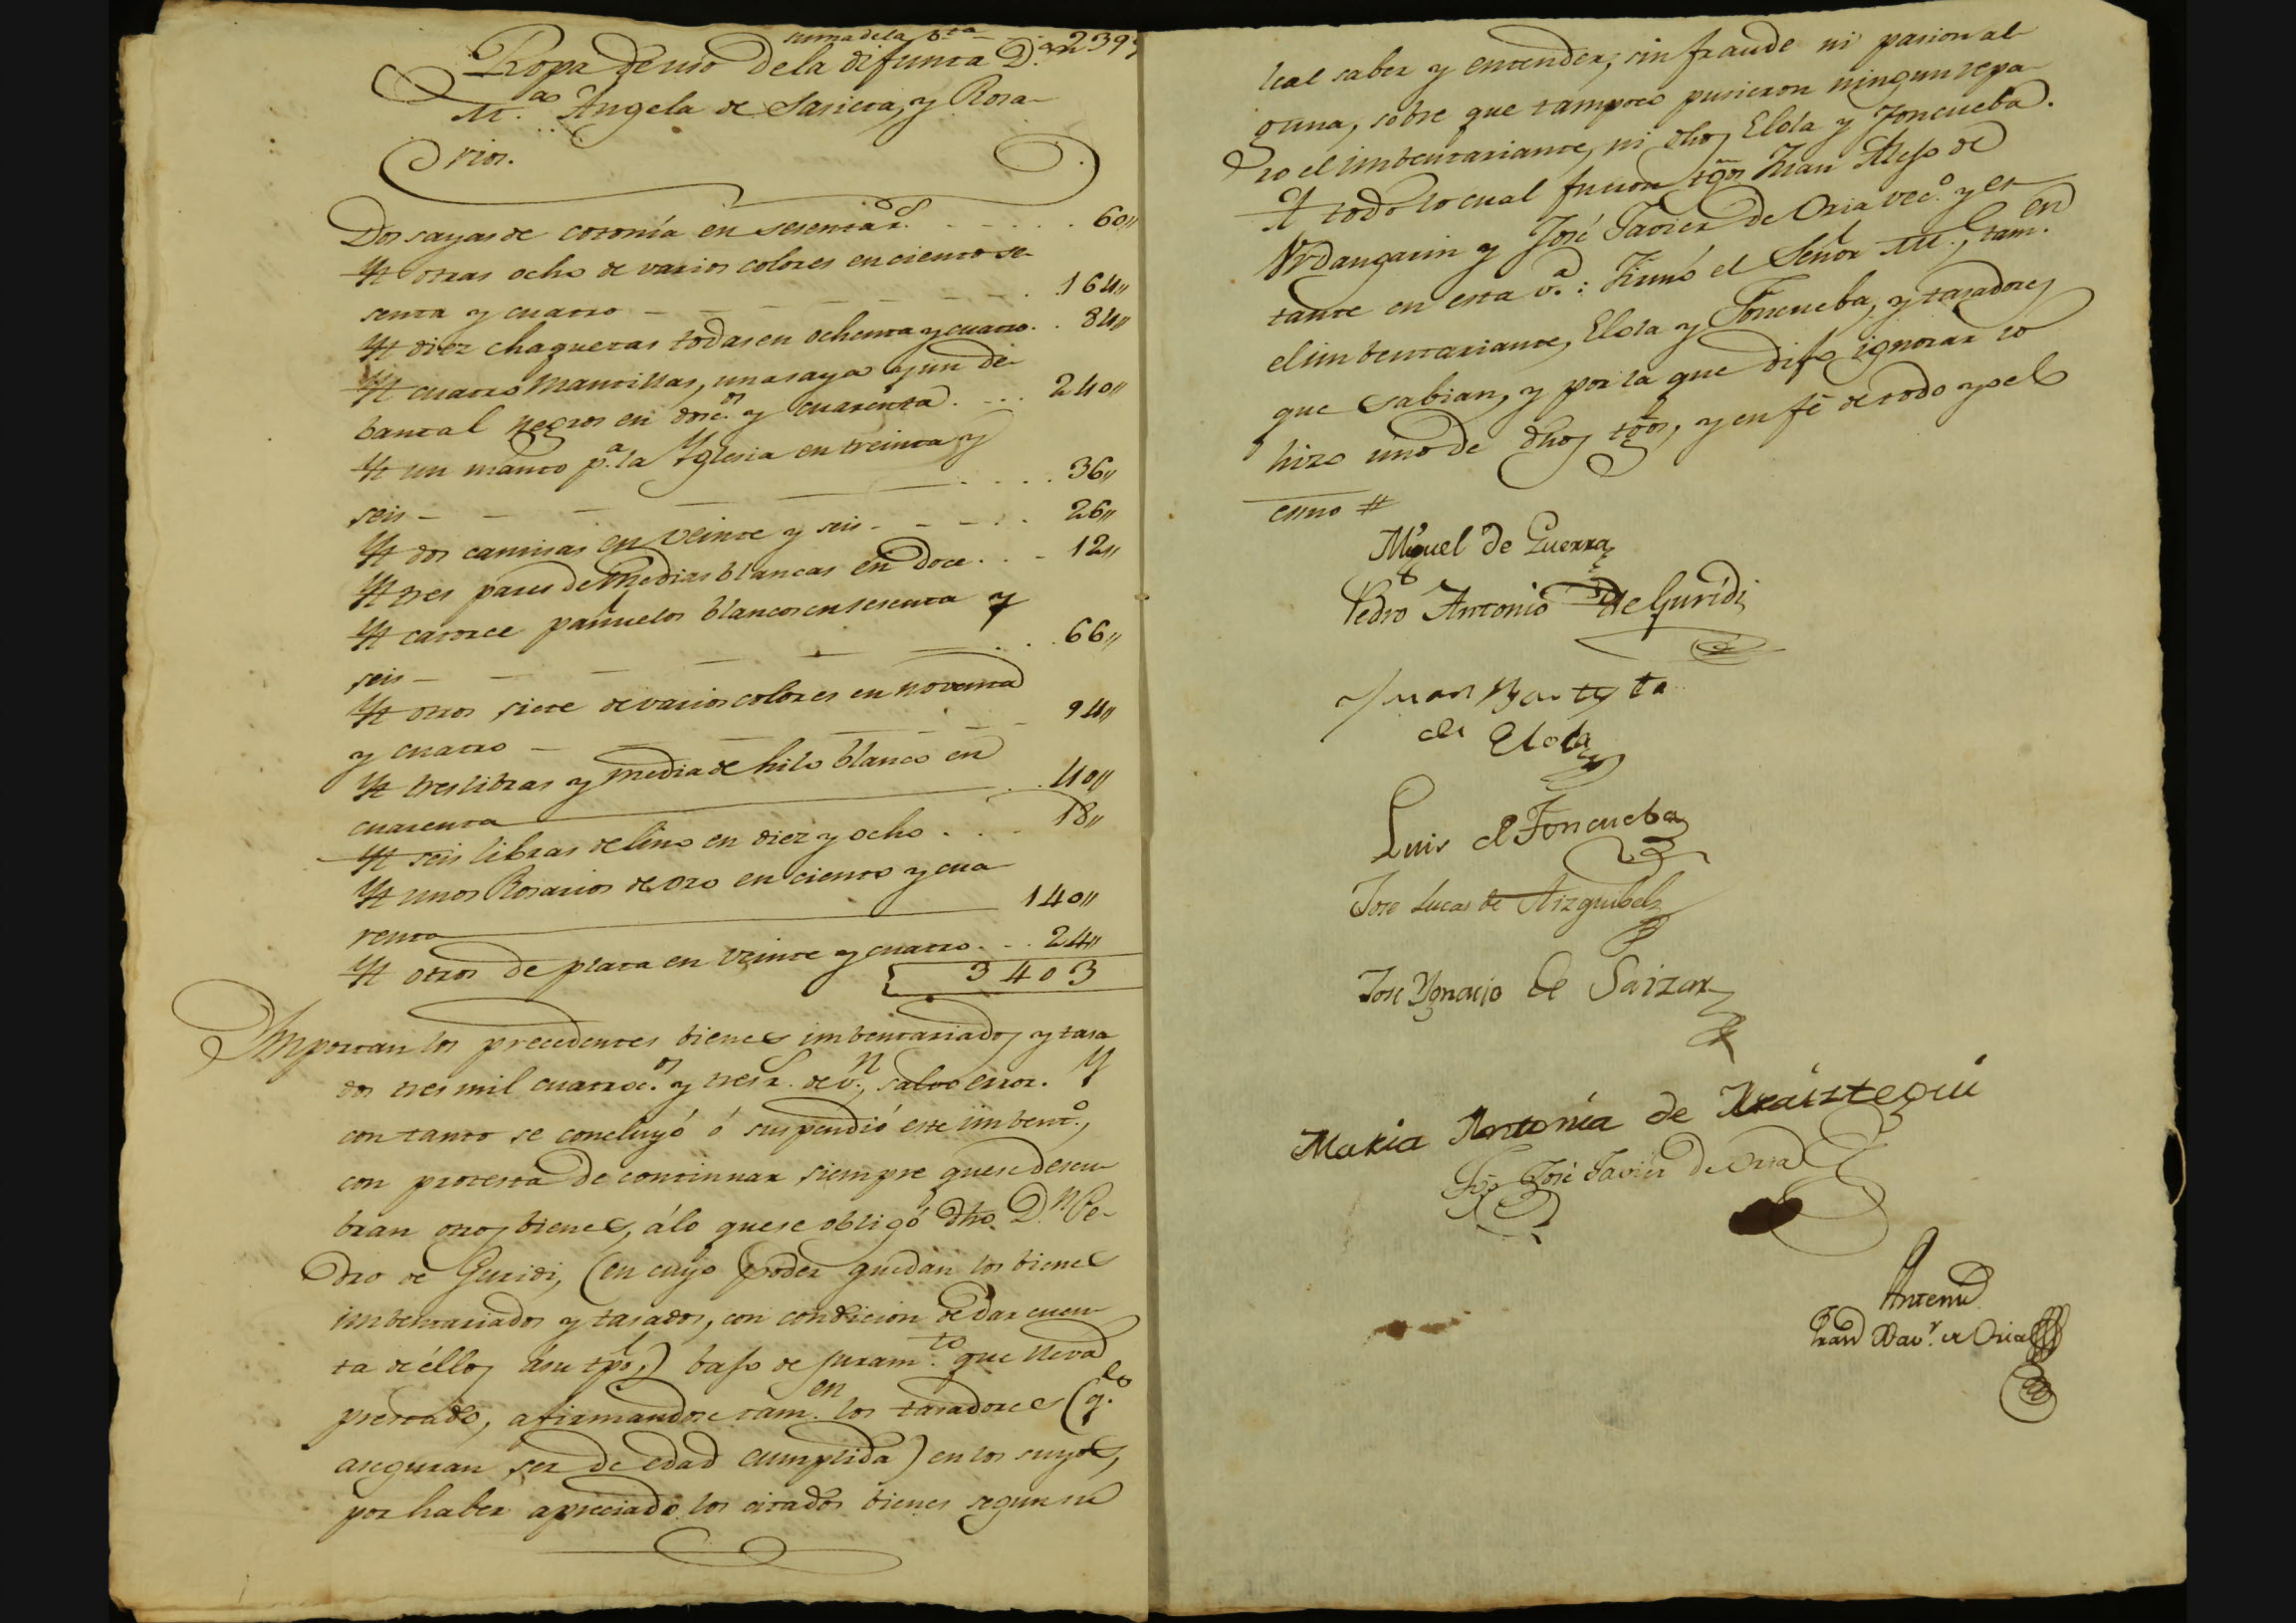 suma de la b.ta - - 239
Ropa de uso de la difunta D.a
M.a Angela de Sarieta, y Rosa-
rios.
Dos sayas de cotonía en sesenta r.s . . . . 60,,
Yt otras ocho de varios colores en ciento se-
senta y cuatro - - - - - - . 164,,
Yt diez chaquetas todas en ochenta y cuatro . . 84,,
Yt cuatro Mantillas, una saya y un de-
bantal negros en dosc.os y cuarenta . . . 240,,
Yt un manto p.a la Yglesia en treinta y
seis - - - - . . . . 36,,
Yt dos camisas en veinte y seis - - - . . 26,,
Yt tres pares de Medias blancas en doce . . - 12,,
Yt catorce pañuelos blancos en sesenta y
seis - - - - . . . 66,,
Yt otros siete de varios colores en noventa
y cuatro - - - - 94,,
Yt tres libras y media de hilo blanco en
cuarenta . . 40,,
Yt seis libras de lino en diez y ocho . . . 18,,
Yt unos Rosarios de oro en ciento y cua-
renta 140,,
Yt otros de plata en veinte y cuatro . . . 24,,
3403
Ymportan los precedentes bienes imbentariados y tasa
dos tres mil cuatroc.os y tres r.s de v.n, salvo error. Y
con tanto se concluyó ó suspendió este imbent.o,
con protesta de continuar siempre que se descu-
bran otros bienes, á lo que se obligó dho D.n Pe-
dro de Guridi, (en cuyo poder quedan los bienes
imbentariados y tasados, con condicion de dar cuen-
ta de éllos á su tpo,) bajo de juram.to que lleva
prestado, afirmandose tam.en los tasadores (q.e
aseguran ser de edad cumplida) en los suyos,
por haber apreciado los citados bienes segun su
leal saber y entender, sin fraude ni pasion al-
guna, sobre que tampoco pusieron ningun repa-
ro el imbentariante, ni dhos Elola y Joncueba.
A todo lo cual fueron tgos Juan Alejo de
Urdangarin y José Javier de Oria vec.o y es-
tante en esta v.a: Firmó el Señor Al.e, tam.en
el imbentariante, Elola y Foncueba, y tasadores
que sabian, y por la que dijo ignorar lo
hizo uno de dhos tgos, y en fé de todo yo el
esno #
Miguel de Guerra
Pedro Antonio de Guridi
Juan Bautysta
de Elola
Luis de Foncueba
Jose Lucas de Aizguibel
Jose Ygnacio de Saizar
Maria Antonia de Araiztegui
Tgo José Javier de Oria
Antemi
Fran.co Xav.r de Oria